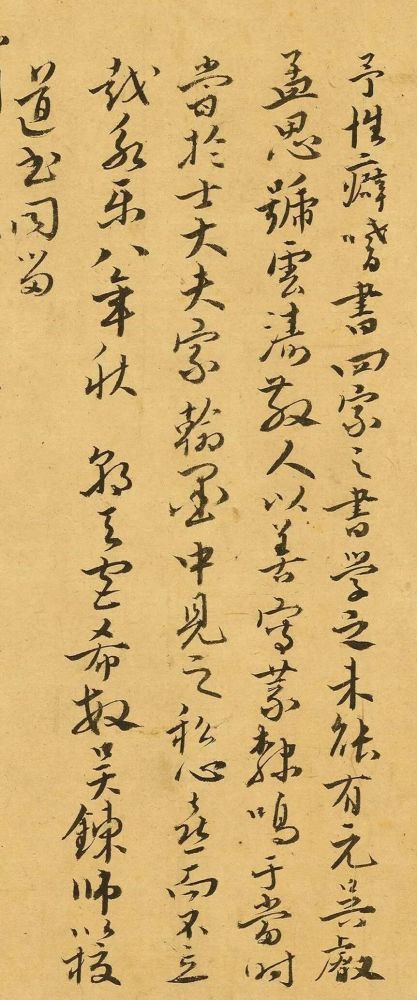 予性癖嗜書四家之書學之未能有元吳叡
孟思號雲濤散人以善寫篆隸鳴于當時
嘗於士大夫家翰墨中見之私心喜而不忘
越永樂八年秋 朝天宮希敏吳鍊師以校
道書同留